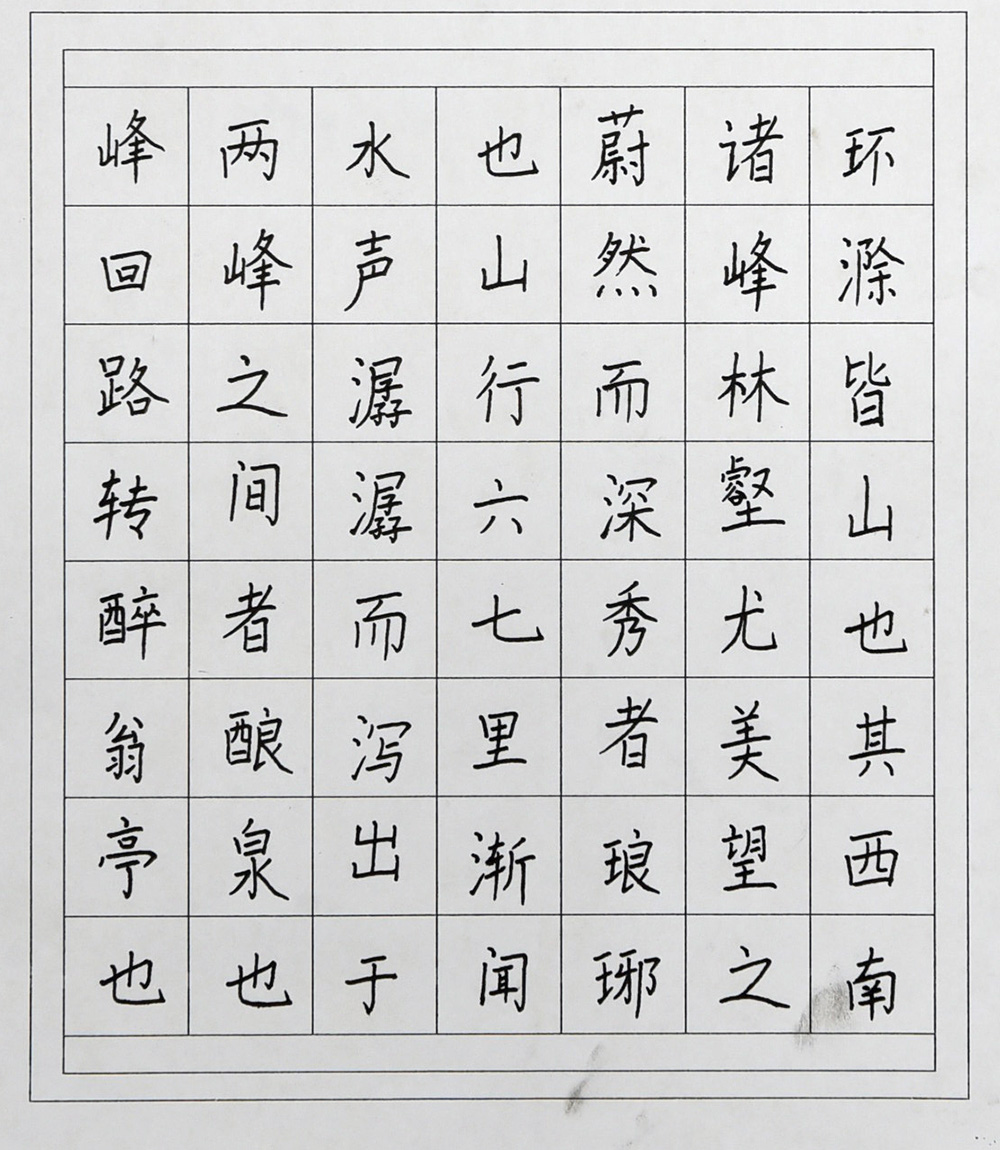 环滁皆山也其西南
诸峰林壑尤美望之
蔚然而深秀者琅琊
也山行六七里渐闻
水声潺潺而泻出于
两峰之间者酿泉也
峰回路转醉翁亭也